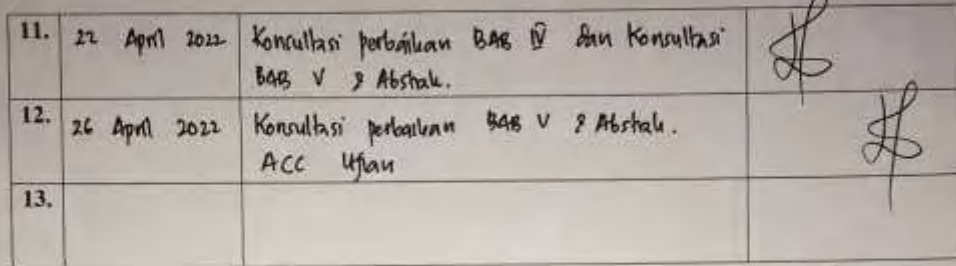 11. 22 April 2022 Konsultasi perbaikan BAB IV dan Konsultasi
BAB V & Abstrak.
12. 26 April 2022 Konsultasi perbaikan BAB V & Abstrak.
ACC Ujian
13.